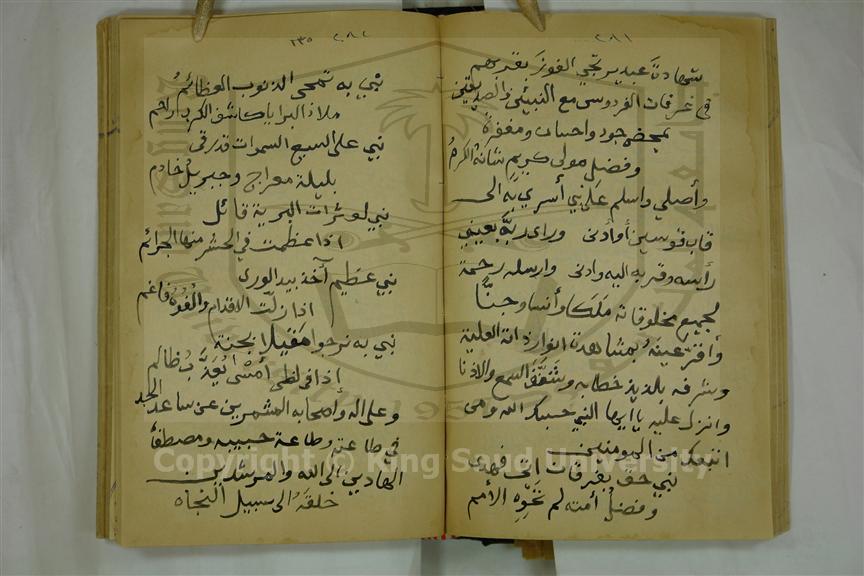 ٢٨١
شهادة عبد يرتجي الفوز بقربهم
في غرفات الفردوس مع النبيئين والصديقين
بمحض جود واحسان ومغفرة
وفضل مولى كريم شانه الكرم
وأصلي واسلم على نبي أسري به الى
قاب قوسين أو أدنى وراى ربه بعيني
رأسه وقربه اليه وادنى وارسله رحمة
لجميع مخلوقاته ملكا وأنسا وجنا
وأقر عينه بمشاهدة انوار ذاته العلية
وشرفه بلذيذ خطابه وشنف السمع والاذنا
وانزل عليه يا ايها النبي حسبك الله ومن
اتبعك من المومنين
نبي حق بفرقان اتى فهدى
وفضل أمته لم تحوه الأمم
٢٨٢ ١٣٥
نبي به تمحى الذنوب العظائم
ملاذ البرايا كاشف الكرب راحم
نبي على السبع السموات قد رقى
بليلة معراج وجبريل خادم
نبي لعثرات البرية قائل
اذا عظمت في الحشر منها الجرائم
نبي عظيم آخذ بيد الورى
اذا زلت الاقدام والفوه فاغم
نبي به نرجوا مقيلا بجنة
إذا في لظى أمسى يعذب ظالم
وعلى اله وأصحابه المشمرين عن ساعد الجد
في طاعته وطاعة حبيبه ومصطفاه
الهاديي الى الله والمرشدين
خلقه الى سبيل النجاه
Copyright © King Saud University